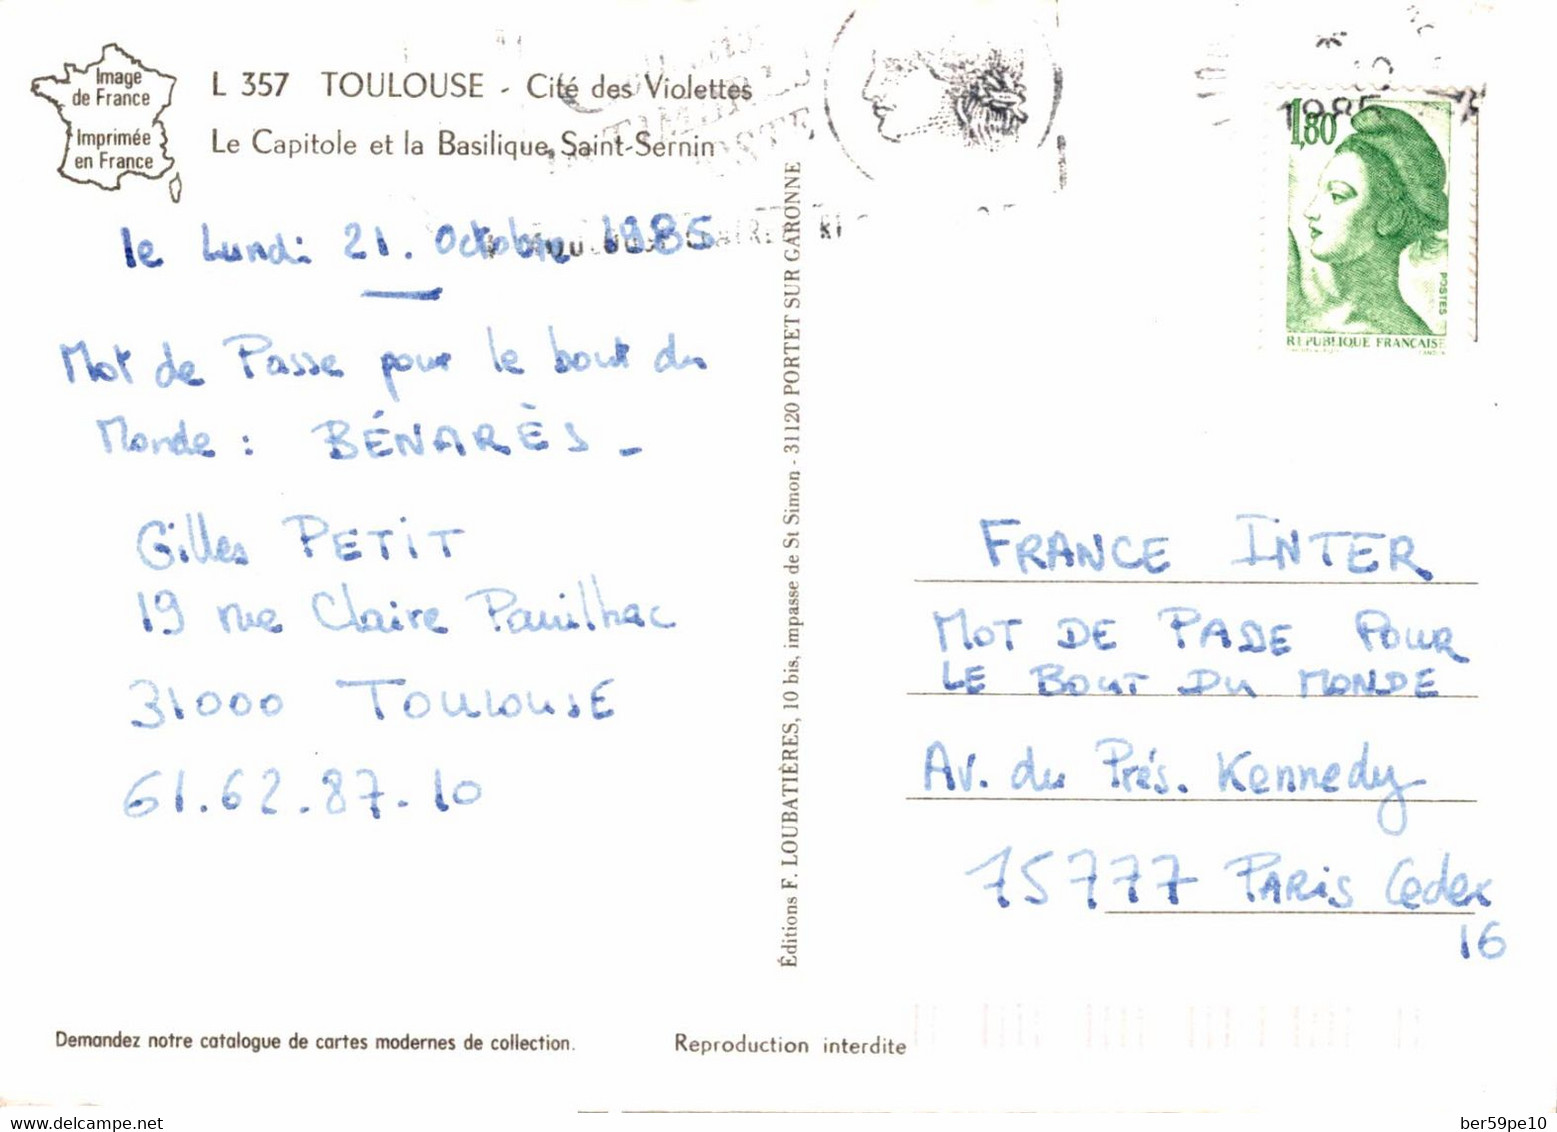 Image
de France
Imprimée
en France
L 357 TOULOUSE - Cité des Violettes
Le Capitole et la Basilique Saint-Sernin
le Lundi 21. Octobre 1985
Mot de Passe pour le bout du
Monde : BÉNARÈS -
Gilles PETIT
19 rue Claire Pauilhac
31000 TOULOUSE
61.62.87-10
Éditions F. LOUBATIÈRES, 10 bis, impasse de St Simon - 31120 PORTET SUR GARONNE
1985
1,80
POSTES
RÉPUBLIQUE FRANÇAISE
FRANCE INTER
MOT DE PASSE POUR
LE BOUT DU MONDE
Av. du Prés. Kennedy
75777 PARIS Cedex
16
Demandez notre catalogue de cartes modernes de collection.
Reproduction interdite
delcampe.net
ber59pe10